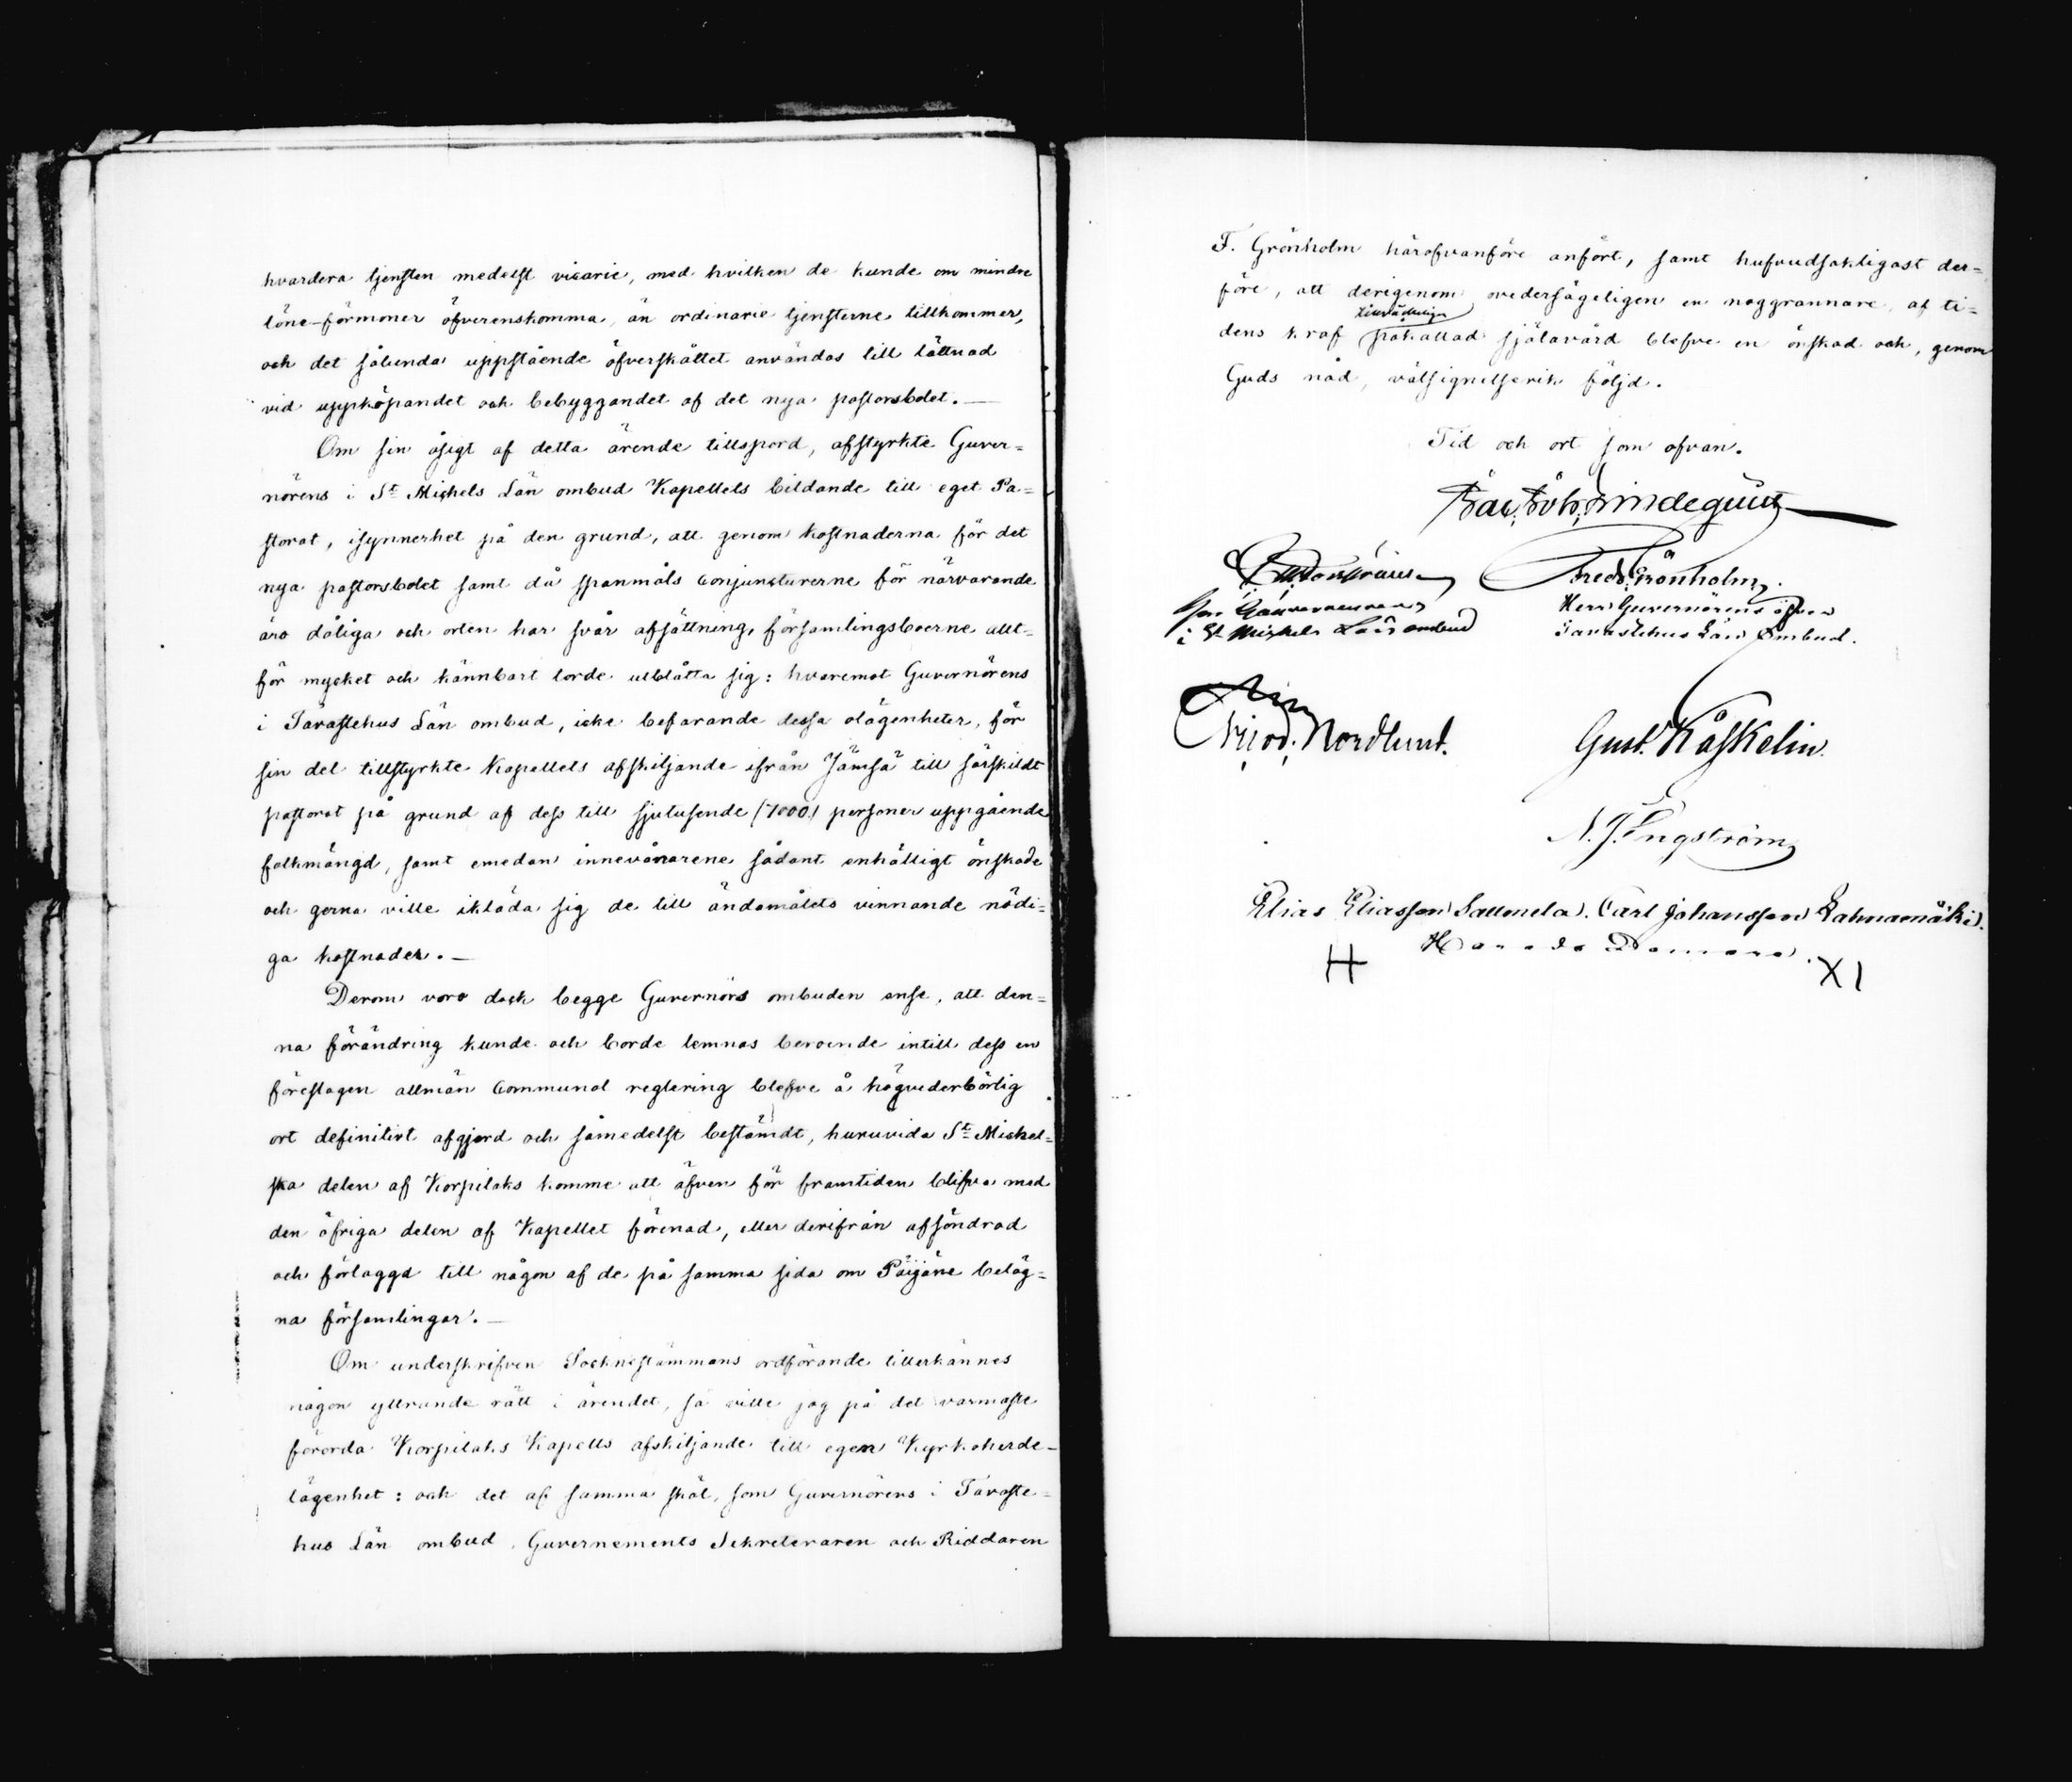 hvardera tjensten medelst vicarie, med hvilken de kunde om mindre
löne-förmoner öfverenskomma, än ordinarie tjensterne tillkommer,
och det sålunda uppstående öfverskåttet användas till lättnad
vid uppköpandet och bebyggandet af det nya pastorsbolet. —
Om sin åsigt af detta ärende tillspord, afstyrkte Guver=
nörens i St Michels Län ombud Kapellets bildande till eget Pa=
storat, isynnerhet på den grund, att genom kostnaderna för det
nya pastorsbolet samt då spanmåls conjuncturerne för närvarande
äro dåliga och orten har svår afsättning, församlingsboerne allt=
för mycket och kännbart torde utblåtta sig: hvaremot Guvernörens
i Tavastehus Län ombud, icke befarande dessa olägenheter, för
sin del tillstyrkte Kapellets afskiljande ifrån Jämsä till särskildt
pastorat på grund af dess till sjutusende (7000) personer uppgående
folkmängd, samt emedan innevånarene sådant enhälligt önskade
och gerna ville ikläda sig de till ändamålets vinnande nödi=
ga kostnader. —
Derom voro dock begge Guvernörs ombuden ense, att den=
na förändring kunde och borde lemnas beroende intill dess en
föreslagen allmän communal reglering blefve å högvederbörlig
ort definitivt afgjord och såmedelst bestämdt, huruvida St Michel=
ska delen af Korpilaks komme att äfven för framtiden blifva med
den öfriga delen af Kapellet förenad, eller derifrån afföndrad
och förlaggd till någon af de på samma sida om Päijäne beläg=
na församlingar. —
Om underskrifven Sockenstämmans ordförande tillerkännes
någon yttrande rätt i ärendet, så ville jag på det varmaste
förorda Korpilaks Kapells afskiljande till egen Kyrkoherde-
lägenhet: och det af samma skäl, som Guvernörens i Tavaste=
hus Län ombud, Guvernements Sekreteraren och Riddaren
F. Grönholm härofvanföre anfört, samt hufvudsakligast der=
före, att derigenom ovedersägeligen en noggrannare, af ti=
dens kraf påkallad själavård blefve en önskad och, genom
Guds nåd, välsignelserik följd.
Tid och ort som ofvan.
Lindequist
Fredr. Grönholm.
Herr Guvernörens öfver
i St Michels Läns ombud
Tavastehus Län Ombud.
Nordlund.
Gust. Kåskelin.
N. J. Engström
Elias Eliasson Salmela. Carl Johansson Lahnamäki.
H
XI